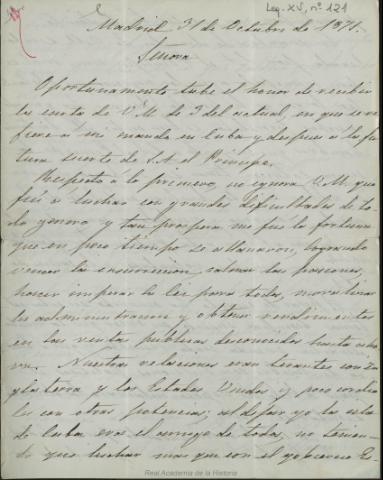 Leg. XV, nº 121
Madrid 31 de Octubre de 1871.
Señora
Oportunamente tube el honor de recibir
la carta de V.M. de 3 del actual, en que se re
fiere á mi mando en Cuba y despues á la fu
tura suerte de S.A. el Principe.
Respecto á lo primero, no ignora V.M. que
fuí á luchar con grandes dificultades de to
do genero y tan prospera me fué la fortuna
que en poco tiempo se allanaron, logrando
vencer la insurreccion, calmar las pasiones,
hacer imperar la ley para todos, moralizar
la administracion y obtener rendimientos
en las rentas publicas desconocidos hasta
Nuestras relaciones eran tirantes con In
glaterra y los Estados Unidos y poco cordia
les con otras potencias; al dejar yo la isla
de Cuba era el amigo de todos, no tenien
do que luchar mas que con el gobierno Es
Real Academia de la Historia